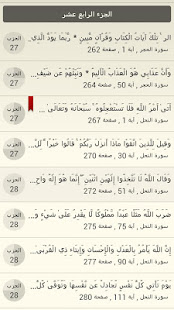 الجزء الرابع عشر
الر ۚ تِلْكَ آيَاتُ الْكِتَابِ وَقُرْآنٍ مُّبِينٍ * رُّبَمَا يَوَدُّ الَّذِي..
سورة الحجر , آية 1 , صفحة 262
الحزب
27
وَأَنَّ عَذَابِي هُوَ الْعَذَابُ الْأَلِيمُ * وَنَبِّئْهُمْ عَن ضَيْفِ..
سورة الحجر , آية 50 , صفحة 264
الحزب
27
أَتَىٰ أَمْرُ اللَّهِ فَلَا تَسْتَعْجِلُوهُ ۚ سُبْحَانَهُ وَتَعَالَىٰ..
سورة النحل , آية 1 , صفحة 267
الحزب
27
وَقِيلَ لِلَّذِينَ اتَّقَوْا مَاذَا أَنزَلَ رَبُّكُمْ ۚ قَالُوا خَيْرًا ۗ لِّل..
سورة النحل , آية 30 , صفحة 270
الحزب
27
وَقَالَ اللَّهُ لَا تَتَّخِذُوا إِلَٰهَيْنِ اثْنَيْنِ ۖ إِنَّمَا هُوَ إِلَٰهٌ وَ..
سورة النحل , آية 51 , صفحة 272
الحزب
28
ضَرَبَ اللَّهُ مَثَلًا عَبْدًا مَّمْلُوكًا لَّا يَقْدِرُ عَلَىٰ شَيْءٍ..
سورة النحل , آية 75 , صفحة 275
الحزب
28
إِنَّ اللَّهَ يَأْمُرُ بِالْعَدْلِ وَالْإِحْسَانِ وَإِيتَاءِ ذِي الْقُرْبَىٰ..
سورة النحل , آية 90 , صفحة 277
الحزب
28
يَوْمَ تَأْتِي كُلُّ نَفْسٍ تُجَادِلُ عَن نَّفْسِهَا وَتُوَفَّىٰ كُلُّ..
سورة النحل , آية 111 , صفحة 280
الحزب
28